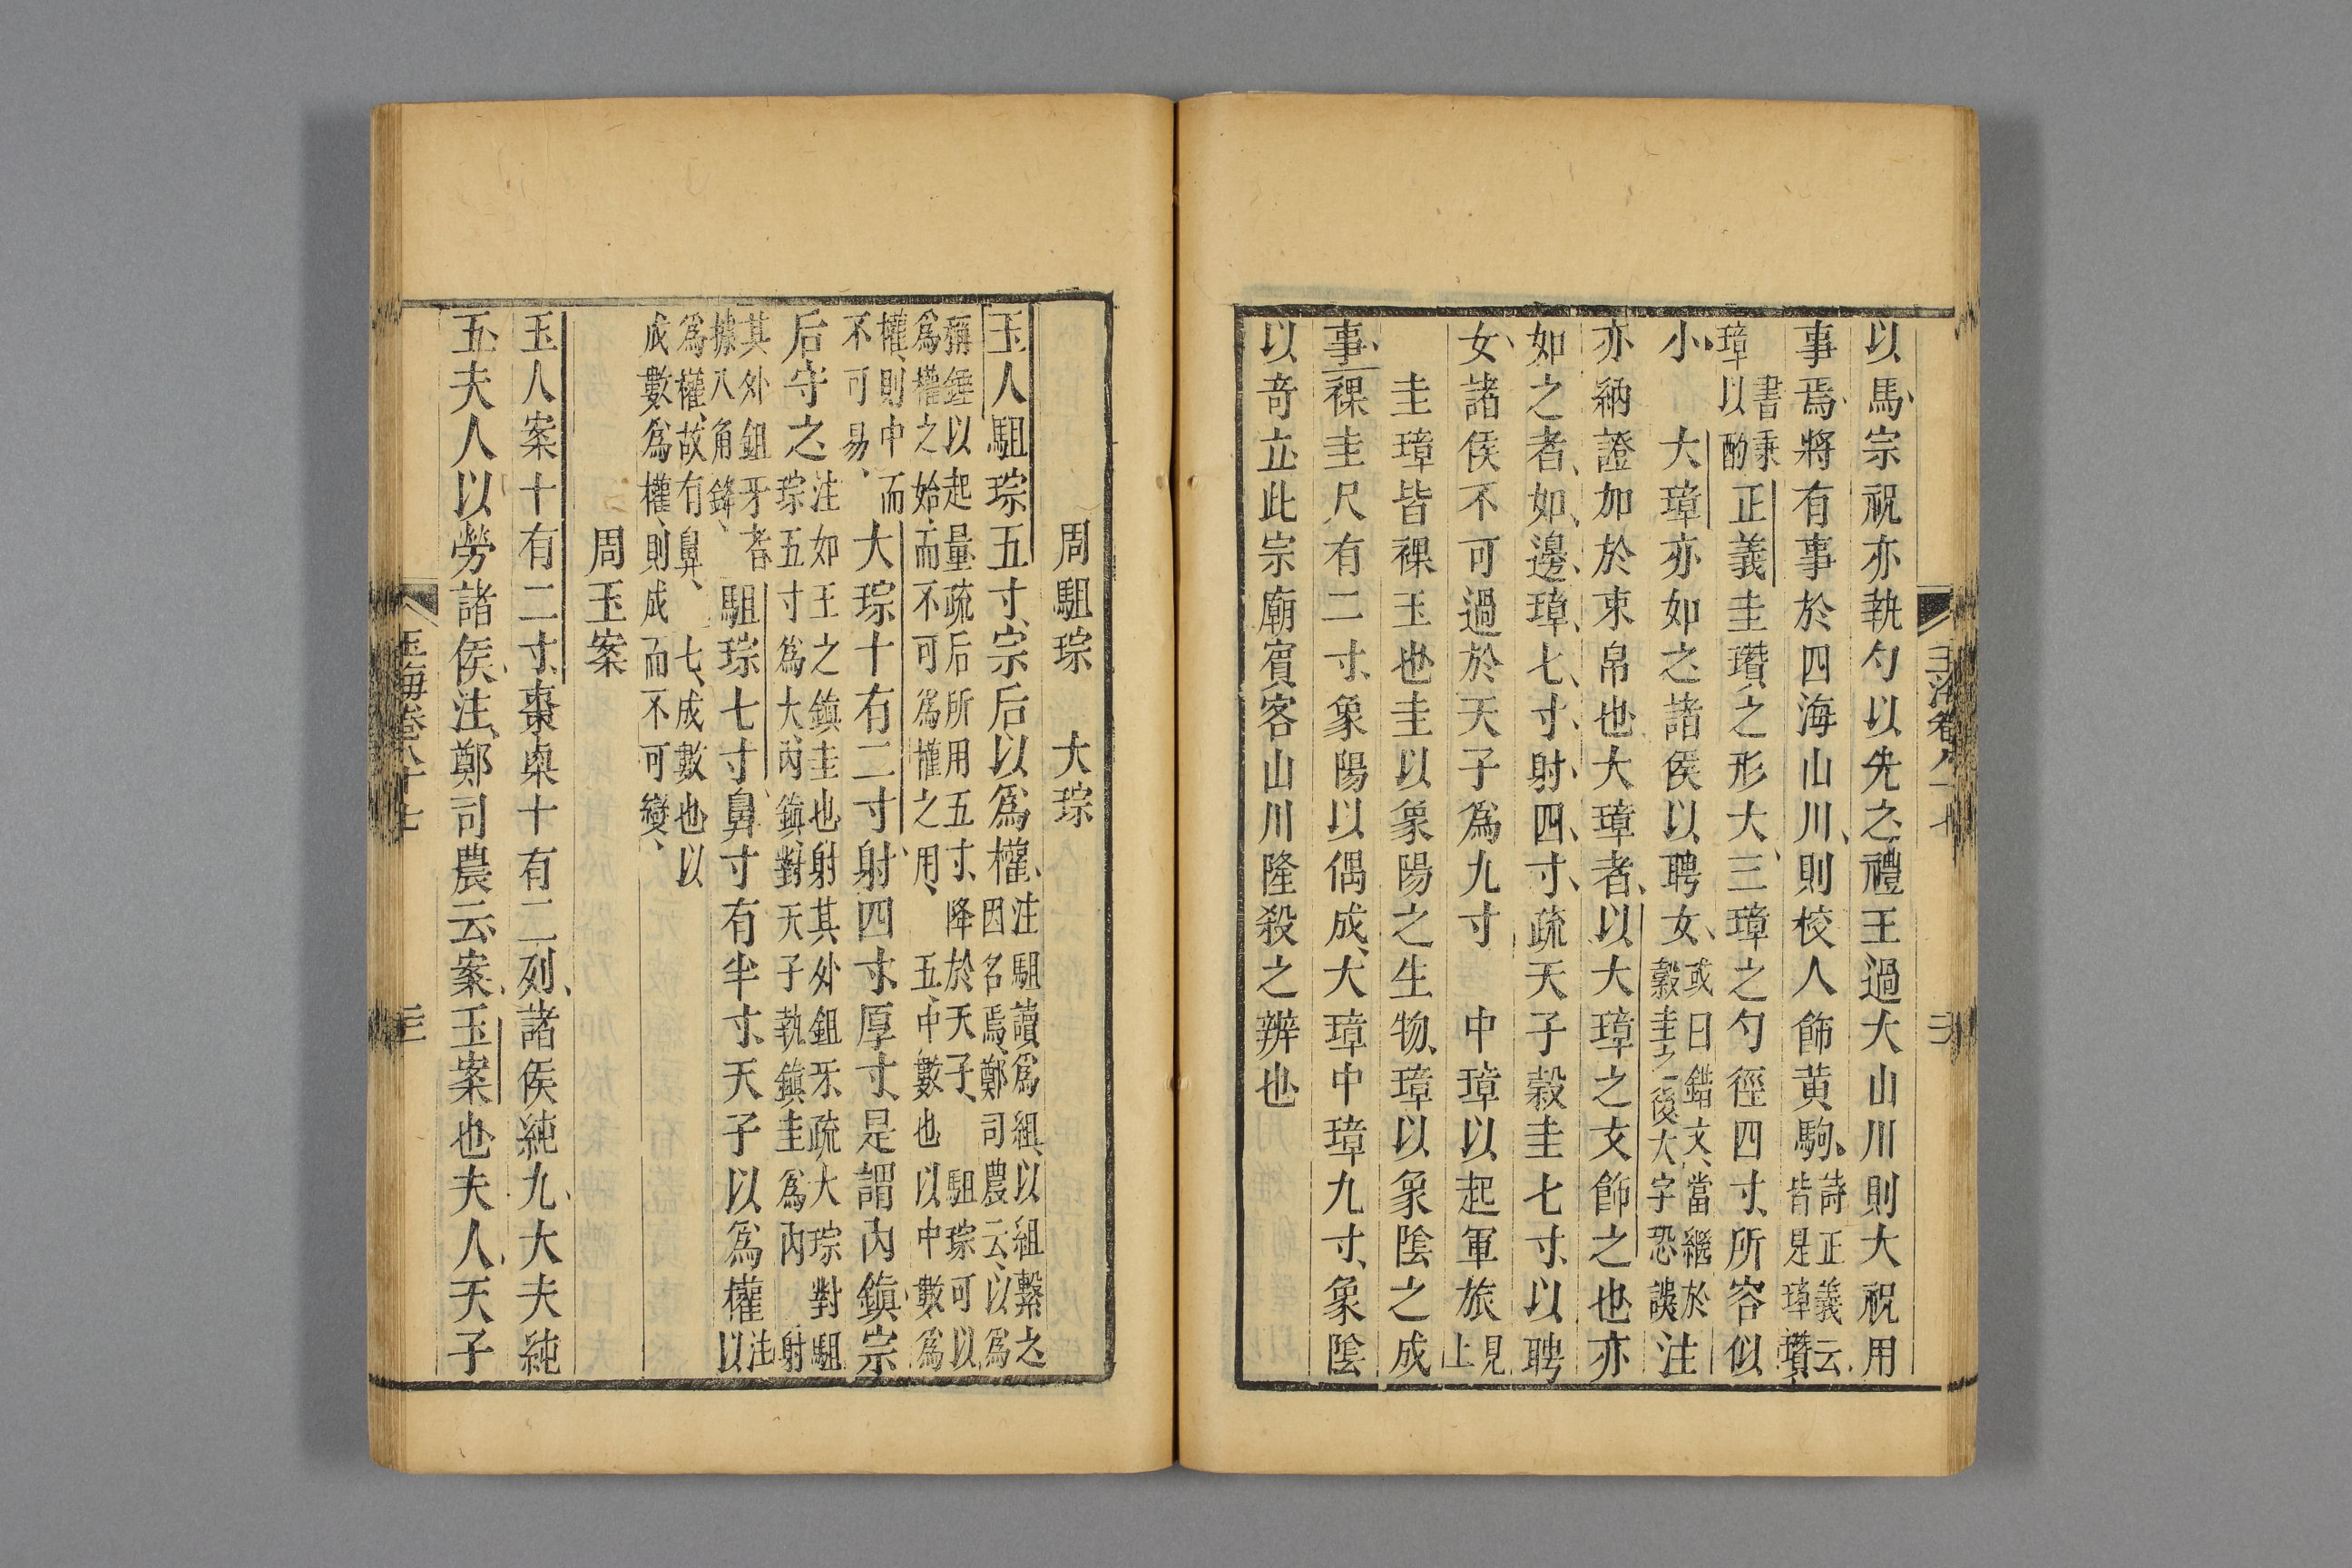 以馬宗祝亦執勺以先之禮王過大山川則大祝用
事焉將有事於四海山川則校人飾黃駒詩正義云皆是璋瓚
璋書秉以酌正義圭瓚之形大三璋之勺徑四寸所容似
小　大璋亦如之諸侯以聘女或曰錯文當繼於穀圭之後大字恐誤注
亦納證加於束帛也大璋者以大璋之文飾之也亦
如之者如邊璋七寸射四寸疏天子穀圭七寸以聘
女諸侯不可過於天子爲九寸　中璋以起軍旅見上
圭璋皆祼玉也圭以象陽之生物璋以象陰之成
事祼圭尺有二寸象陽以偶成大璋中璋九寸象陰
以奇立此宗廟賓客山川隆殺之辨也
玉海卷八十七
周駔琮　大琮
玉人駔琮五寸宗后以爲權注駔讀爲組以組繫之因名焉鄭司農云以爲
稱錘以起量疏后所用五寸降於天子　駔琮可以爲權之始而不可爲權之用　五中數也以中數爲
權則中而不可易　大琮十有二寸射四寸厚寸是謂內鎮宗
后守之注如王之鎮圭也射其外鉏牙疏大琮對駔琮五寸爲大內鎮對天子執鎮圭爲內　射
其外鉏牙者據八角鋒　駔琮七寸鼻寸有半寸天子以爲權注以
爲權故有鼻　七成數也以成數爲權則成而不可變
周玉案
玉人案十有二寸棗㮚十有二列諸侯純九大夫純
五夫人以勞諸侯注鄭司農云案玉案也夫人天子
玉海卷八十七
三